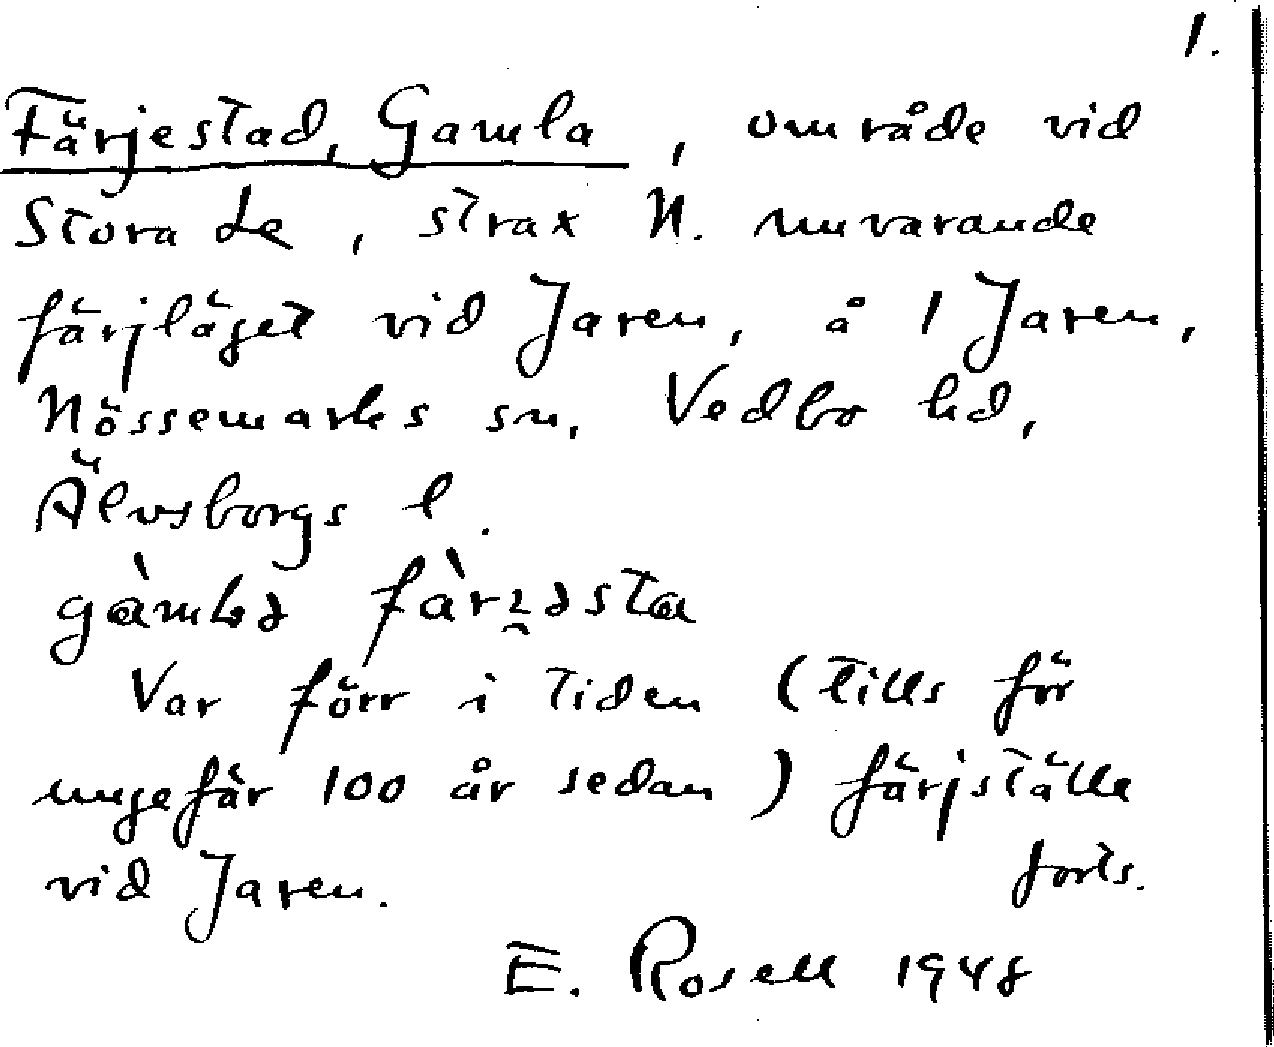 1.
Färjestad, Gamla, område vid
Stora Le, strax N. nuvarande
färjläget vid Jaren, å 1 Jaren,
Nössemarks sn, Vedbo hd,
Älvsborgs l.
Var förr i tiden (tills för
ungefär 100 år sedan) färjställe
vid Jaren.
forts.
E. Rosell 1948